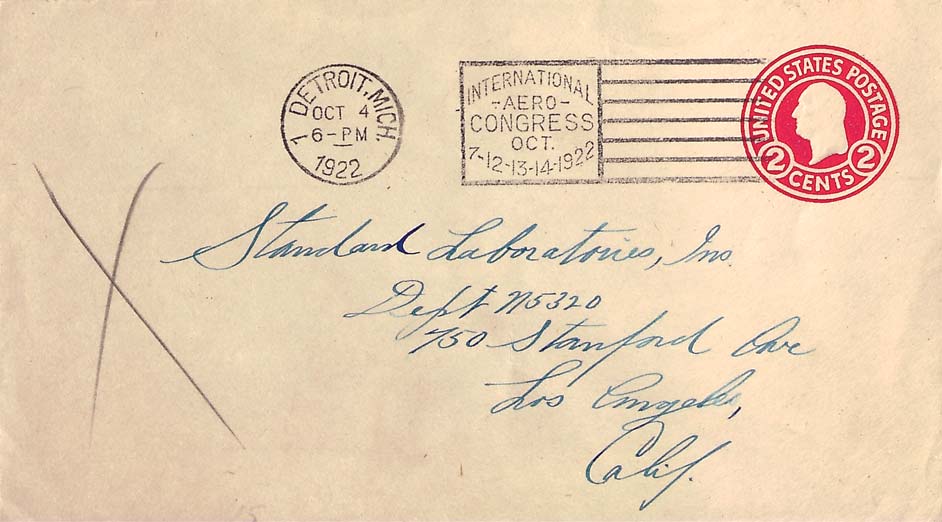 DETROIT, MICH.
1
OCT 4
6-PM
1922
INTERNATIONAL
-AERO-
CONGRESS
OCT.
7-12-13-14-1922
UNITED STATES POSTAGE
2 CENTS 2
Standard Laboratories, Inc.
Dept N5320
750 Stanford Ave
Los Angeles,
Calif.